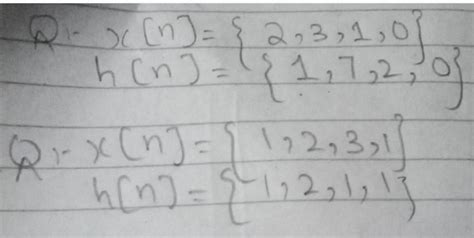 Q:- x[n] = {2,3,1,0}
h[n] = {1,7,2,0}
Q:- x[n] = {1,2,3,1}
h[n] = {1,2,1,1}